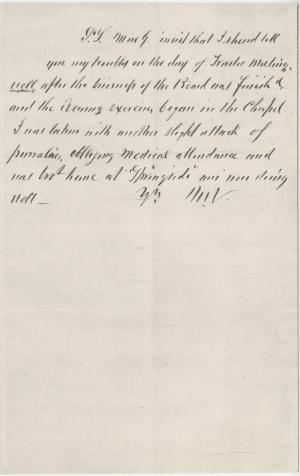 P.S. Miss G. insist that I should tell
you my troubles on the day of Trustee Meeting,
well, after the business of the Board was finish'd
and the Evening exercises began in the Chapel
I was taken with another slight attack of
paralasis, obliging Medical attendance and
was bro't home at "Springside" am now doing
well —
Yrs M.V.